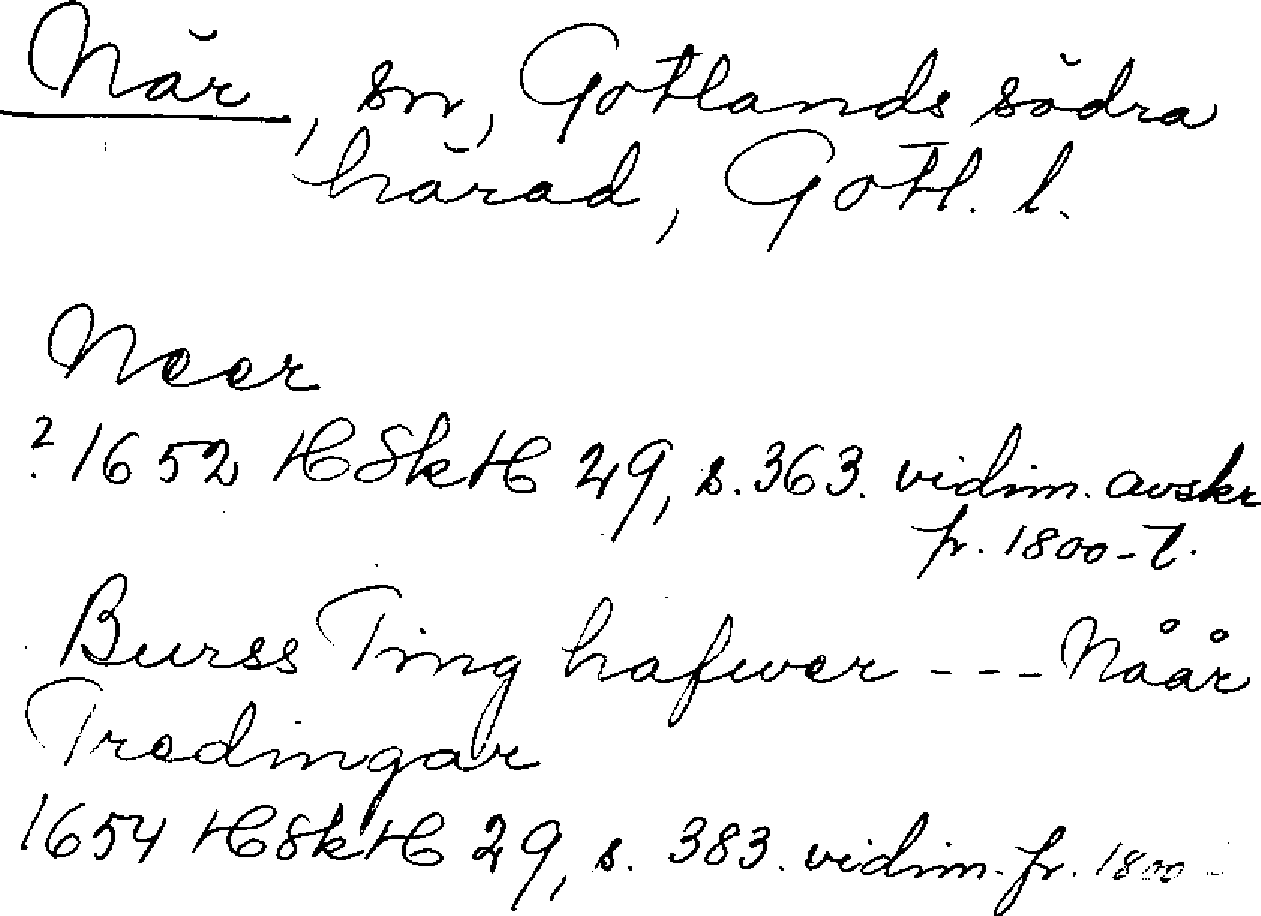 När, sn, Gotlands södra
härad, Gotl. l.
Neer
? 1652 HSkH 29, s. 363. vidim. avskr
fr. 1800-t.
Burss Ting hafwer --- Nåår
Tredingar
1654 HSkH 29, s. 383. vidim. fr. 1800-